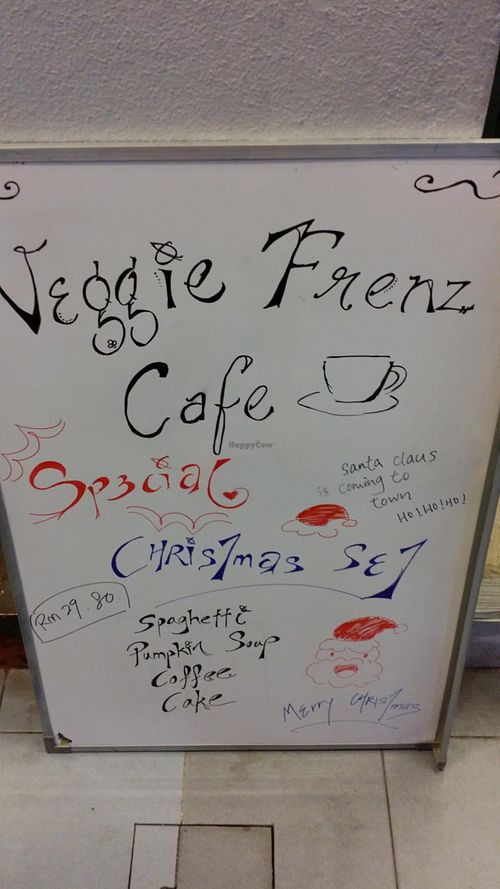 Veggie Frenz
Cafe
HappyCow
Sp3cial
santa claus
is coming to
town
HO! HO! HO!
CHRisTmas SET
Rm 29.80
Spaghetti
Pumpkin Soup
Coffee
Cake
Merry CHRisTmas